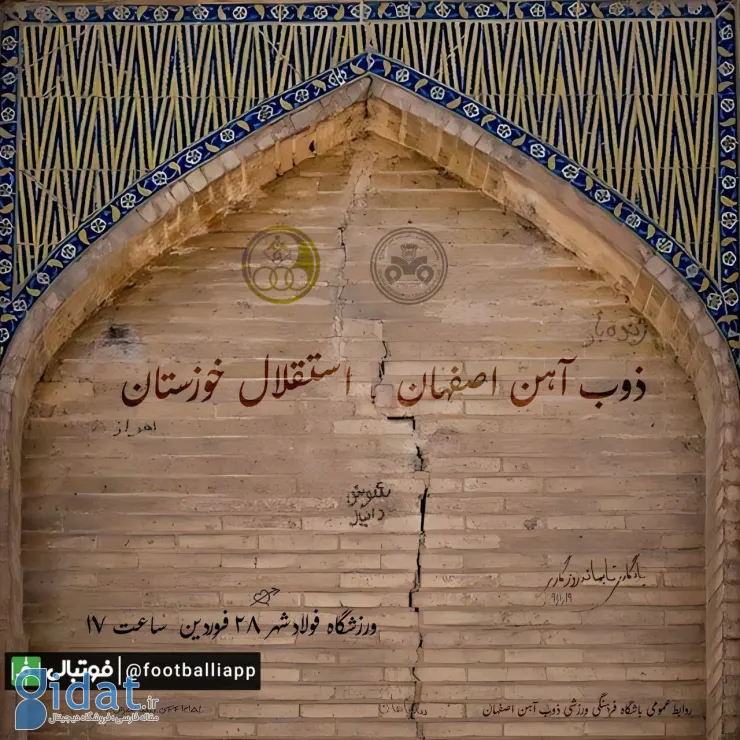 زنده باد
ذوب آهن اصفهان استقلال خوزستان
اهواز
دانیال
یادگاری تا بماند روزگاری
ورزشگاه فولادشهر ۲۸ فروردین ساعت ۱۷
فوتبالی @footballiapp
Gidat.ir
مقاله فارسی؛ فروشگاه دیجیتال
روابط عمومی باشگاه فرهنگی ورزشی ذوب آهن اصفهان